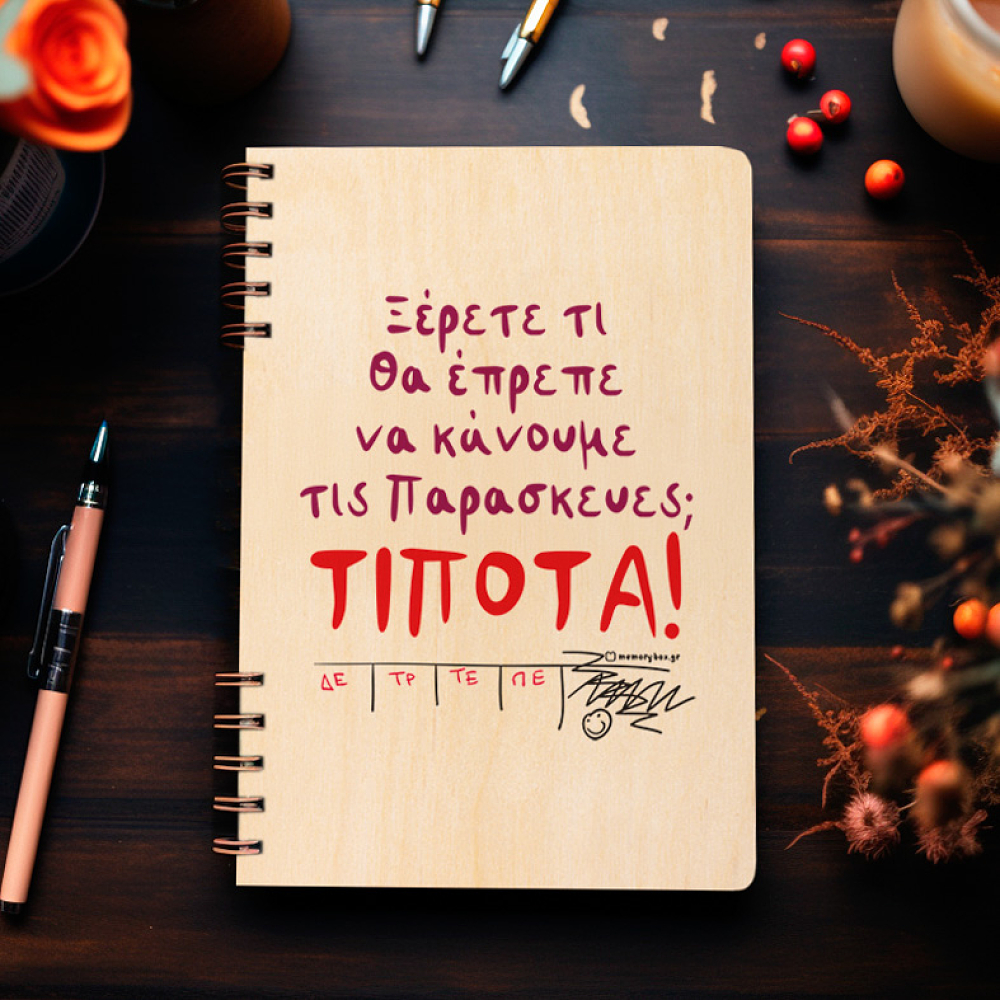 Ξέρετε τι
θα έπρεπε
να κάνουμε
τις Παρασκευες;
ΤΙΠΟΤΑ!
memorybox.gr
ΔΕ ΤΡ ΤΕ ΠΕ